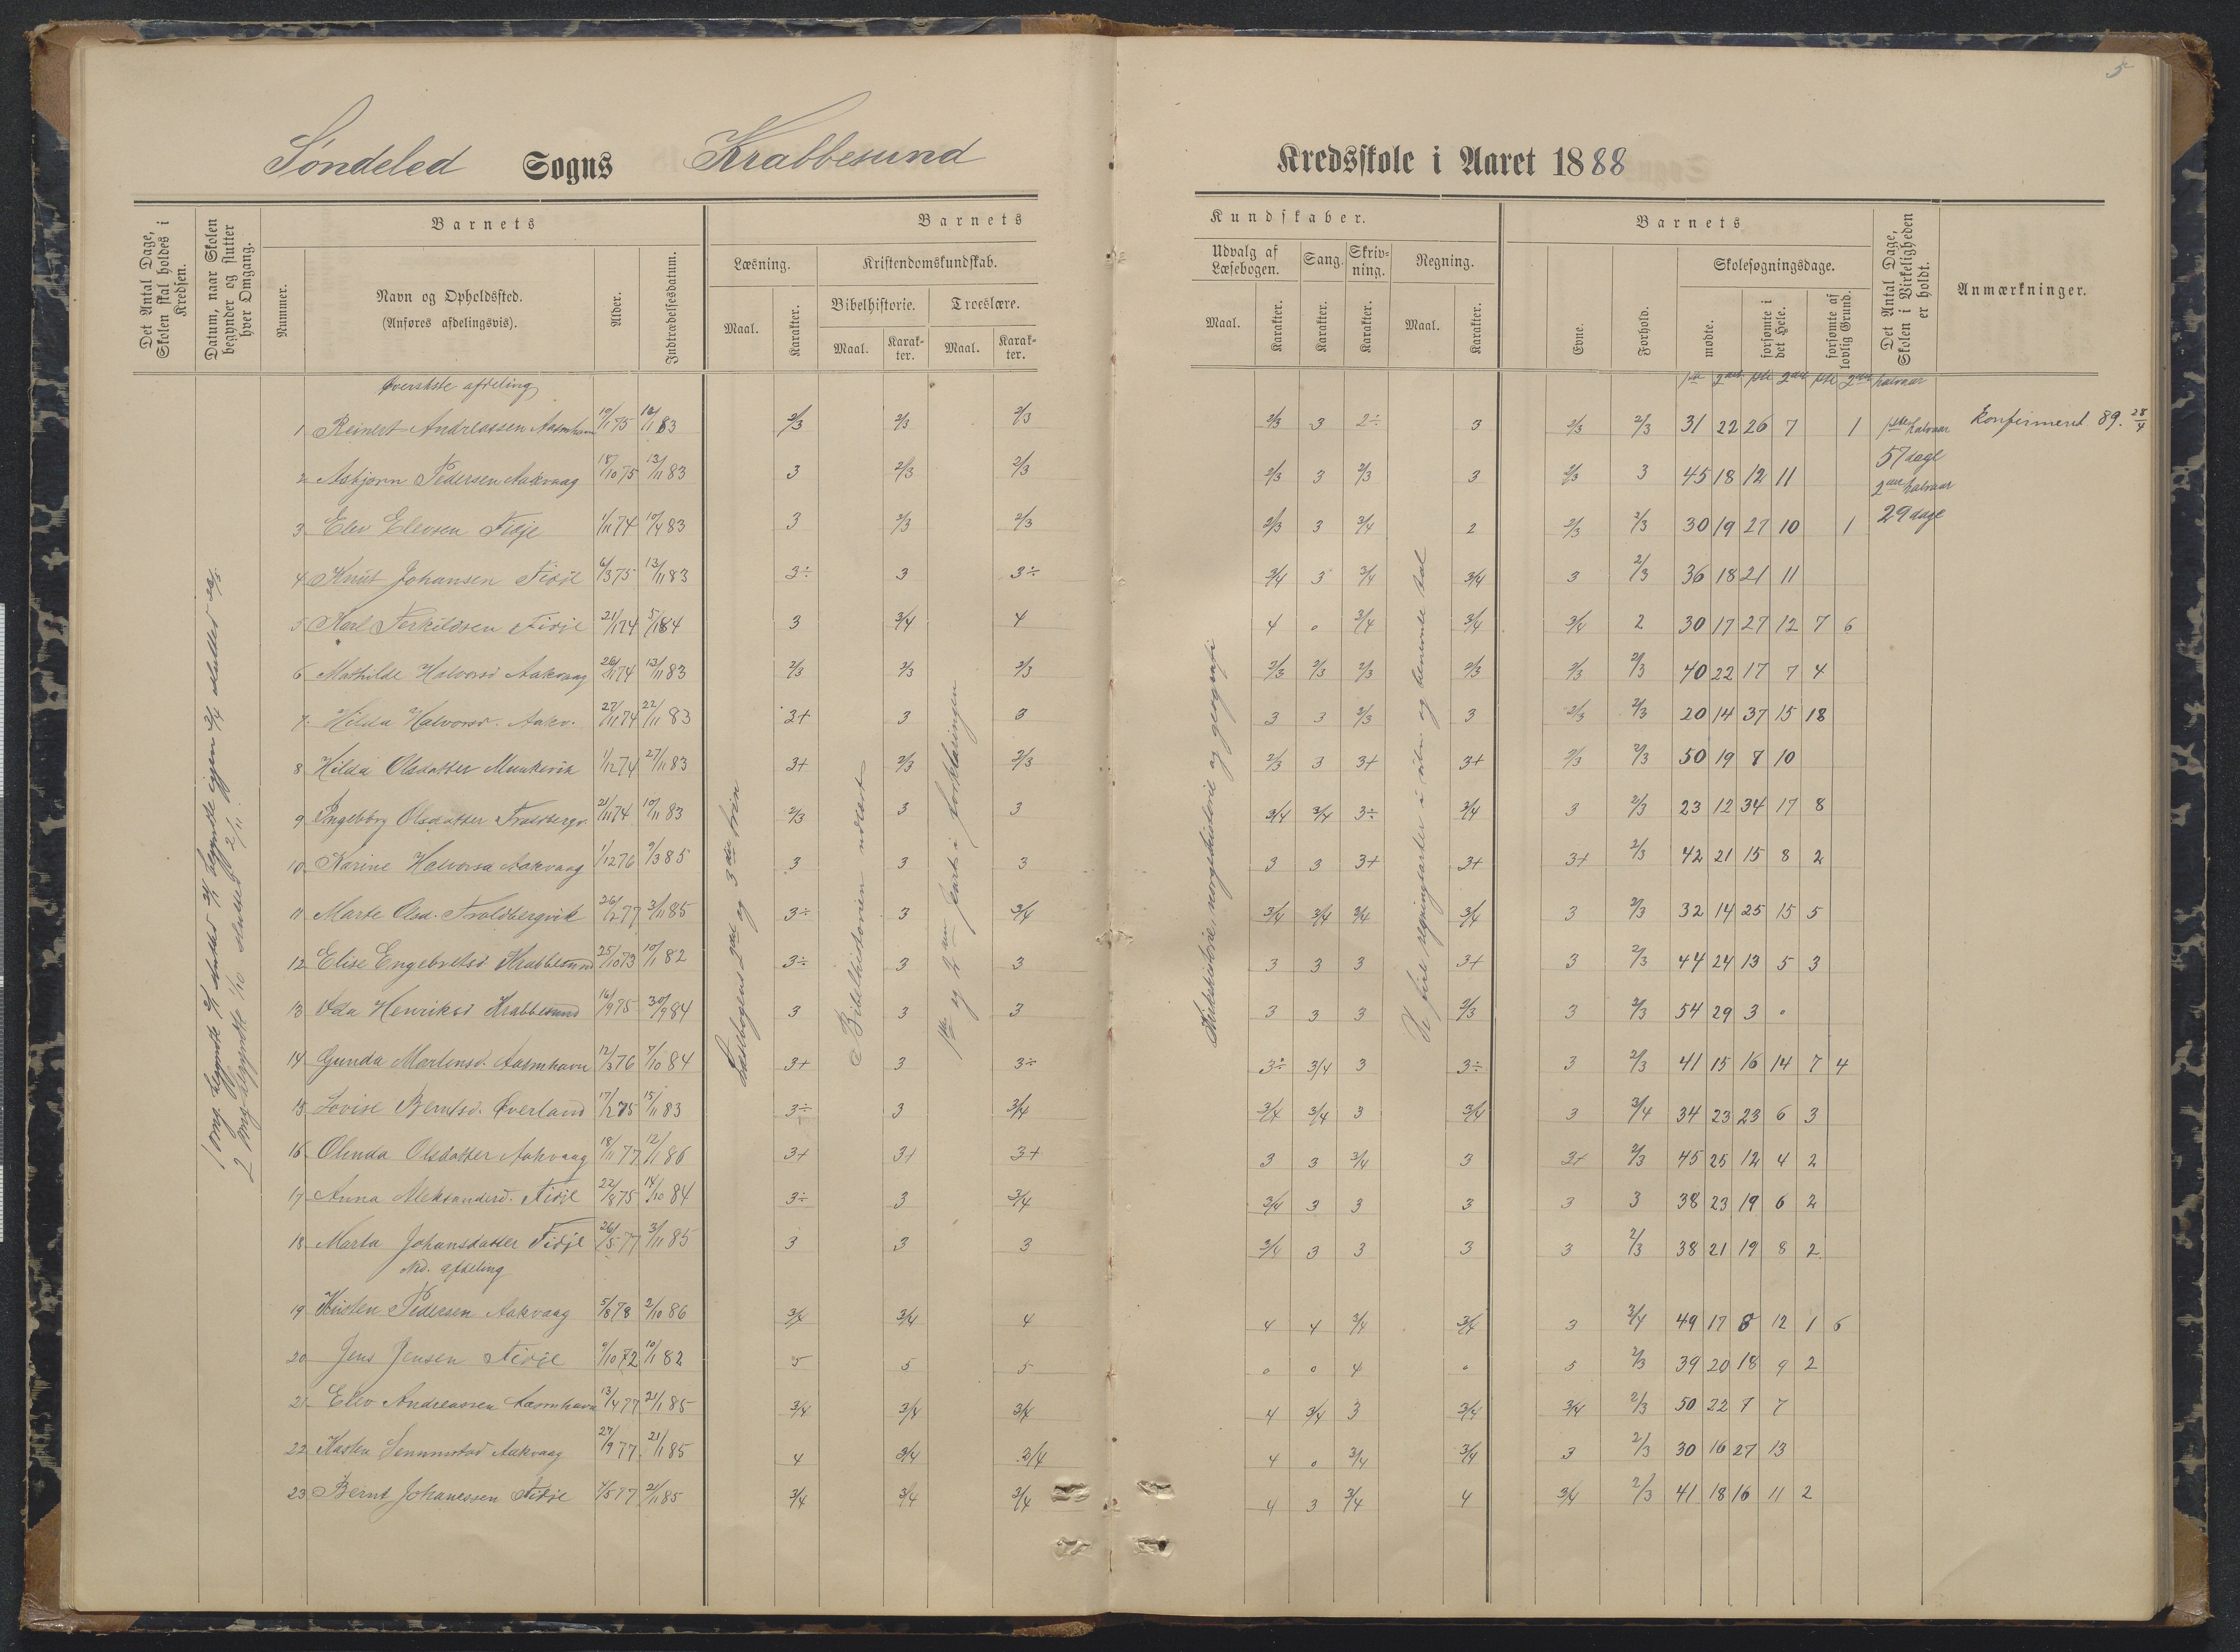 5
Søndeled Sogns Krabbesund Kredsskole i Aaret 1888
Det Antal Dage, Skolen skal holdes i Kredsen.
Datum, naar Skolen begynder og slutter hver Omgang.
Barnets
Nummer.
Navn og Opholdssted.
(Anføres afdelingsvis).
Alder.
Indtrædelsesdatum.
Barnets
Kundskaber.
Læsning.
Maal.
Karakter.
Kristendomskundskab.
Bibelhistorie.
Maal.
Karakter.
Troeslære.
Maal.
Karakter.
Udvalg af Læsebogen.
Maal.
Karakter.
Sang.
Karakter.
Skrivning.
Karakter.
Regning.
Maal.
Karakter.
Barnets
Evne.
Forhold.
Skolesøgningsdage.
mødte.
forsømte i det Hele.
forsømte af lovlig Grund.
Det Antal Dage, Skolen i Virkeligheden er holdt.
Anmærkninger.
Øverste afdeling
1ste 2det 1ste 2det 1ste 2det halvaar
1 Reinert Andreassen Aasmhavn 19/1 75 16/11 83 2/3 2/3 2/3 2/3 3 2÷ 3 2/3 2/3 31 22 26 7 1 1ste halvaar Konfirmeret 89. 28/4
2 Asbjørn Pedersen Aakvaag 18/10 75 13/11 83 3 2/3 2/3 2/3 3 2/3 3 2/3 3 45 18 12 11 57 dage
2det halvaar
3 Elev Elevsen Fidje 1/11 74 10/4 83 3 2/3 2/3 2/3 3 3/4 2 2/3 2/3 30 19 27 10 1 29 dage
4 Knut Johansen Fidje 6/3 75 13/11 83 3÷ 3 3÷ 3/4 5 3/4 3/4 3 2/3 36 18 21 11
5 Karl Terkildsen Fidje 21/1 74 5/1 84 3 3/4 4 4 0 3/4 3/4 3/4 2 30 17 27 12 7 6
6 Mathilde Halvorsd Aakvaag 26/11 74 13/11 83 2/3 2/3 2/3 2/3 2/3 2/3 2/3 2/3 2/3 40 22 17 7 4
7 Hilda Halvorsd. Aakv. 27/11 74 22/11 83 3+ 3 3 3 3 2/3 3 2/3 2/3 20 14 37 15 18
8 Hilda Olsdatter Munkevik 1/12 74 27/11 83 3+ 2/3 2/3 2/3 3 3+ 3+ 2/3 2/3 50 19 7 10
9 Ingeborg Olsdatter Troldbergv. 21/11 74 10/11 83 2/3 3 3 3/4 3/4 3÷ 3/4 3 2/3 23 12 34 17 8
10 Karine Halvorsd Aakvaag 1/12 76 9/3 85 3 3 3 3 3 3+ 3+ 3+ 2/3 42 21 15 8 2
11 Marte Olsd. Troldbergvik 26/2 77 3/11 85 3÷ 3 3/4 3/4 3/4 3/4 3/4 3 2/3 32 14 25 15 5
12 Elise Engebretsd. Krabbesund 25/10 73 10/1 82 3÷ 3 3 3 3 3 3+ 3 2/3 44 24 13 5 3
13 Ida Henriksd Krabbesund 16/9 75 30/9 84 3 3 3 3 3 3 2/3 3 2/3 54 29 3 0
14 Gunda Mortensd. Aasmhavn 12/3 76 7/10 84 3+ 3 3÷ 3÷ 3/4 3 3÷ 3 2/3 41 15 16 14 7 4
15 Lovise Berntsd. Øverland 17/12 75 15/11 83 3÷ 3 3/4 3/4 3/4 3 3/4 3 3/4 34 23 23 6 3
16 Olinda Olsdatter Aakvaag 18/11 77 12/1 86 3+ 3+ 3+ 3 3 3/4 3 3+ 2/3 45 25 12 4 2
17 Anna Aleksanderd. Fidje 22/8 75 14/10 84 3÷ 3 3/4 3/4 3 3 3 3 3 38 23 19 6 2
18 Marta Johansdatter Fidje 26/5 77 3/11 85 3 3 3 3/4 3 3 3 3 2/3 38 21 19 8 2
Ned. afdeling
19 Kristen Pedersen Aakvaag 5/8 78 2/10 86 3/4 3/4 4 4 4 3/4 3/4 3 3/4 49 17 8 12 1 6
20 Jens Jensen Fidje 9/10 72 10/1 82 5 5 5 0 0 4 0 5 2/3 39 20 18 9 2
21 Elev Andreassen Aasmhavn 13/4 77 21/1 85 3/4 3/4 3/4 4 3/4 3 3/4 3/4 2/3 50 22 7 7
22 Aakvaag 27/9 77 21/1 85 4 3/4 3/4 4 0 3/4 3/4 3 2/3 30 16 27 13
23 Bernt Johanessen Fidje 4/5 77 2/11 85 3/4 3/4 3/4 4 3 3/4 4 3/4 2/3 41 18 16 11 2
Læsebogens 2det og 3die trin
Bibelhistorien udlært
1ste og 2den part i forklaringen
Kirkehistorie, norgeshistorie og geografi
De fire regningsarter i uben. og benævnte tal